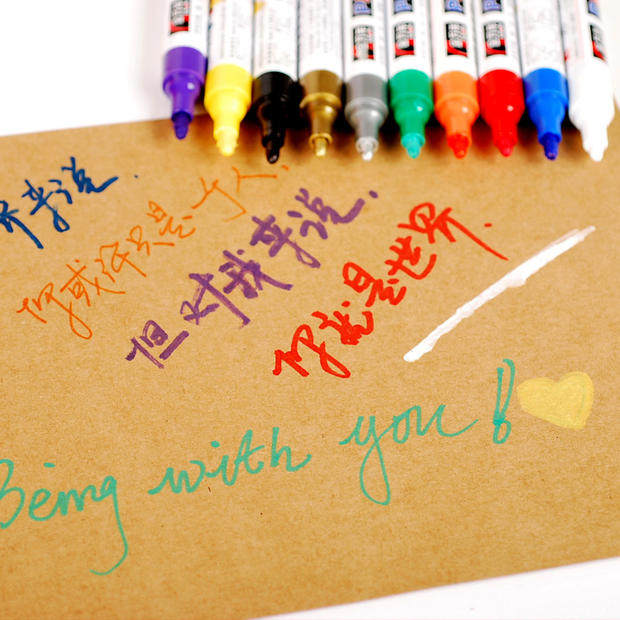 界来说.
你或许只是一个人.
但对我来说.
你就是世界.
Being with you!